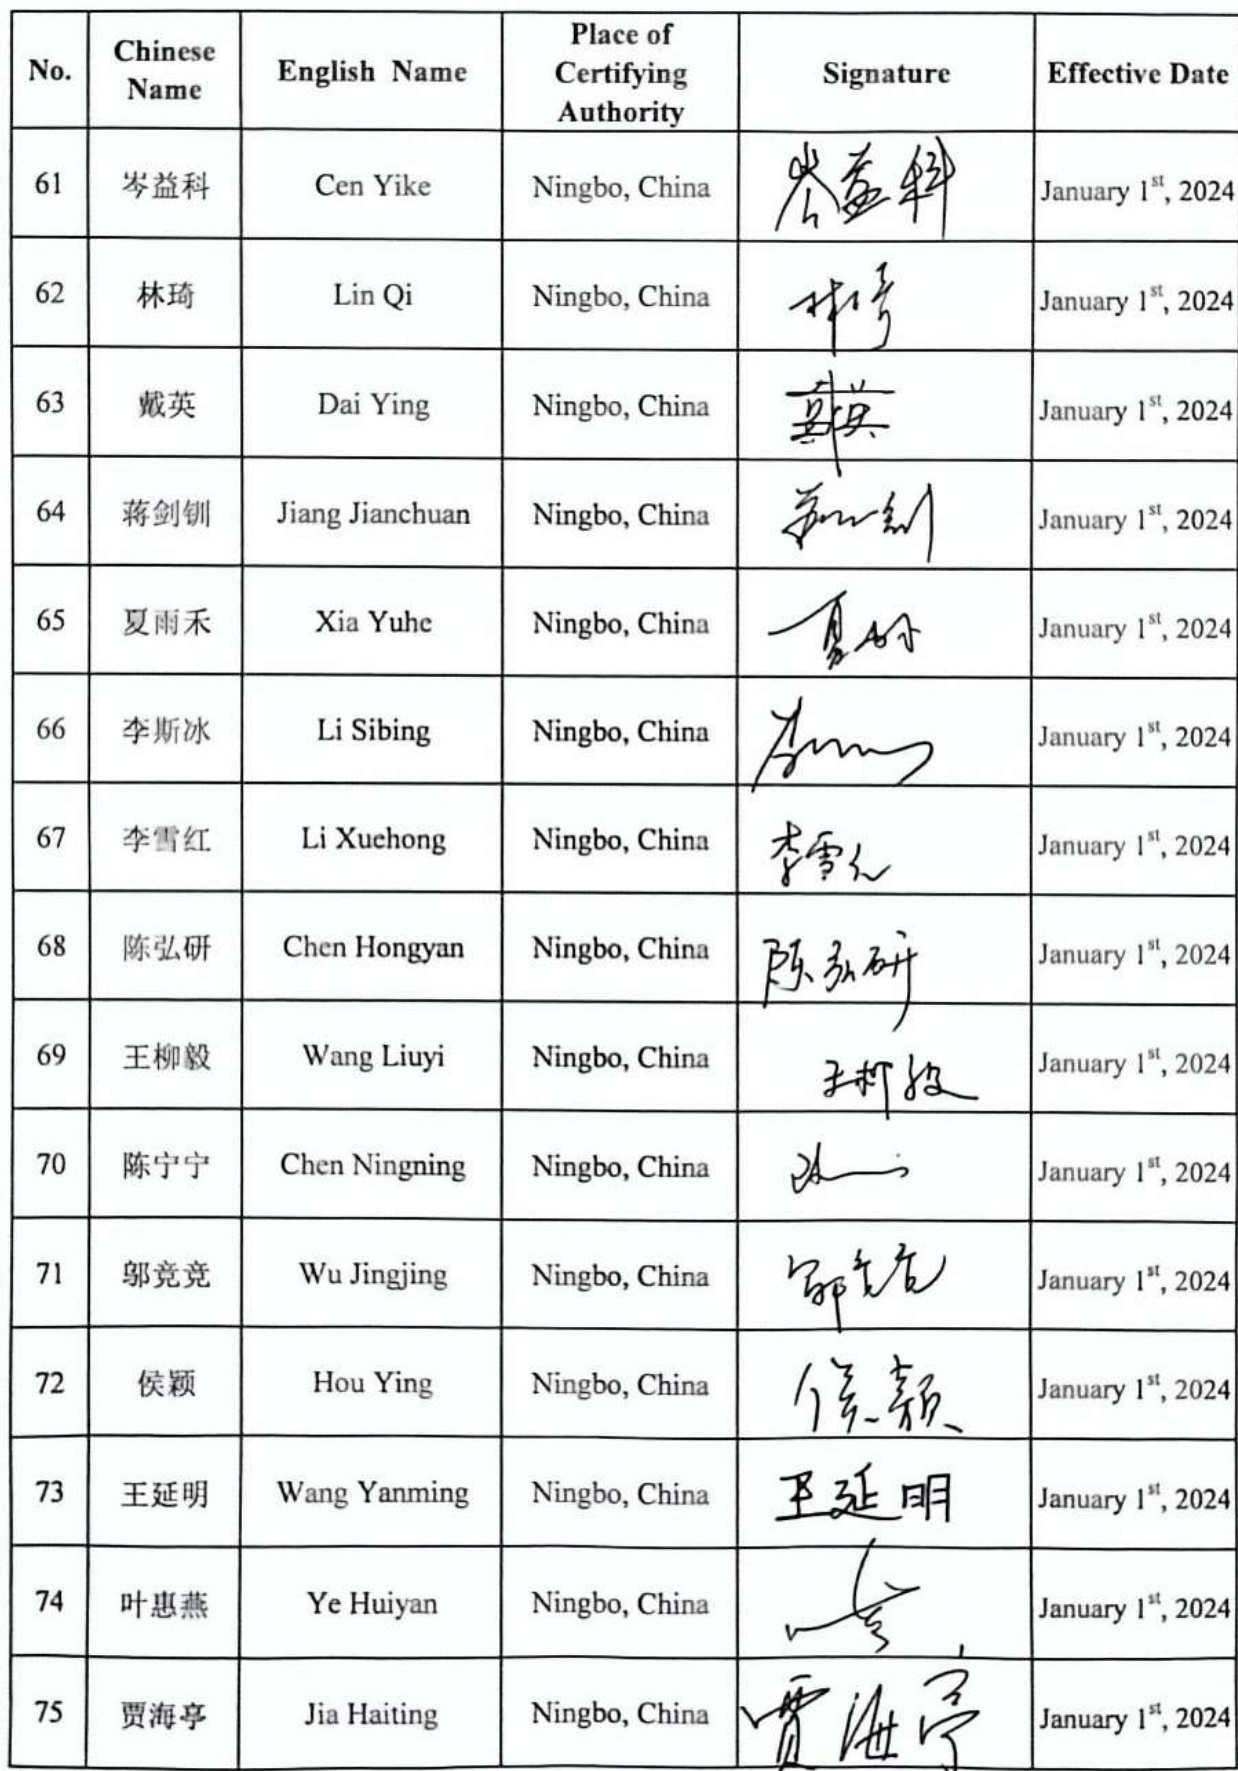 No. Chinese Name English Name Place of Certifying Authority Signature Effective Date
61 岑益科 Cen Yike Ningbo, China 岑益科 January 1st, 2024
62 林琦 Lin Qi Ningbo, China 林琦 January 1st, 2024
63 戴英 Dai Ying Ningbo, China 戴英 January 1st, 2024
64 蒋剑钏 Jiang Jianchuan Ningbo, China January 1st, 2024
65 夏雨禾 Xia Yuhe Ningbo, China January 1st, 2024
66 李斯冰 Li Sibing Ningbo, China January 1st, 2024
67 李雪红 Li Xuehong Ningbo, China 李雪红 January 1st, 2024
68 陈弘研 Chen Hongyan Ningbo, China 陈弘研 January 1st, 2024
69 王柳毅 Wang Liuyi Ningbo, China 王柳毅 January 1st, 2024
70 陈宁宁 Chen Ningning Ningbo, China January 1st, 2024
71 邬竞竞 Wu Jingjing Ningbo, China January 1st, 2024
72 侯颖 Hou Ying Ningbo, China 侯颖 January 1st, 2024
73 王延明 Wang Yanming Ningbo, China 王延明 January 1st, 2024
74 叶惠燕 Ye Huiyan Ningbo, China January 1st, 2024
75 贾海亭 Jia Haiting Ningbo, China 贾海亭 January 1st, 2024